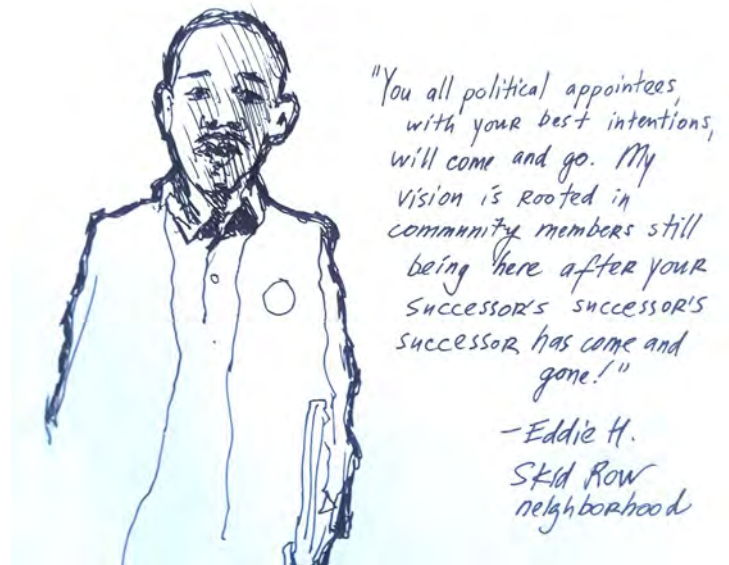 "You all political appointees,
with your best intentions,
will come and go. My
vision is rooted in
community members still
being here after your
successor's successor's
successor has come and
gone!"
- Eddie H.
Skid Row
neighborhood